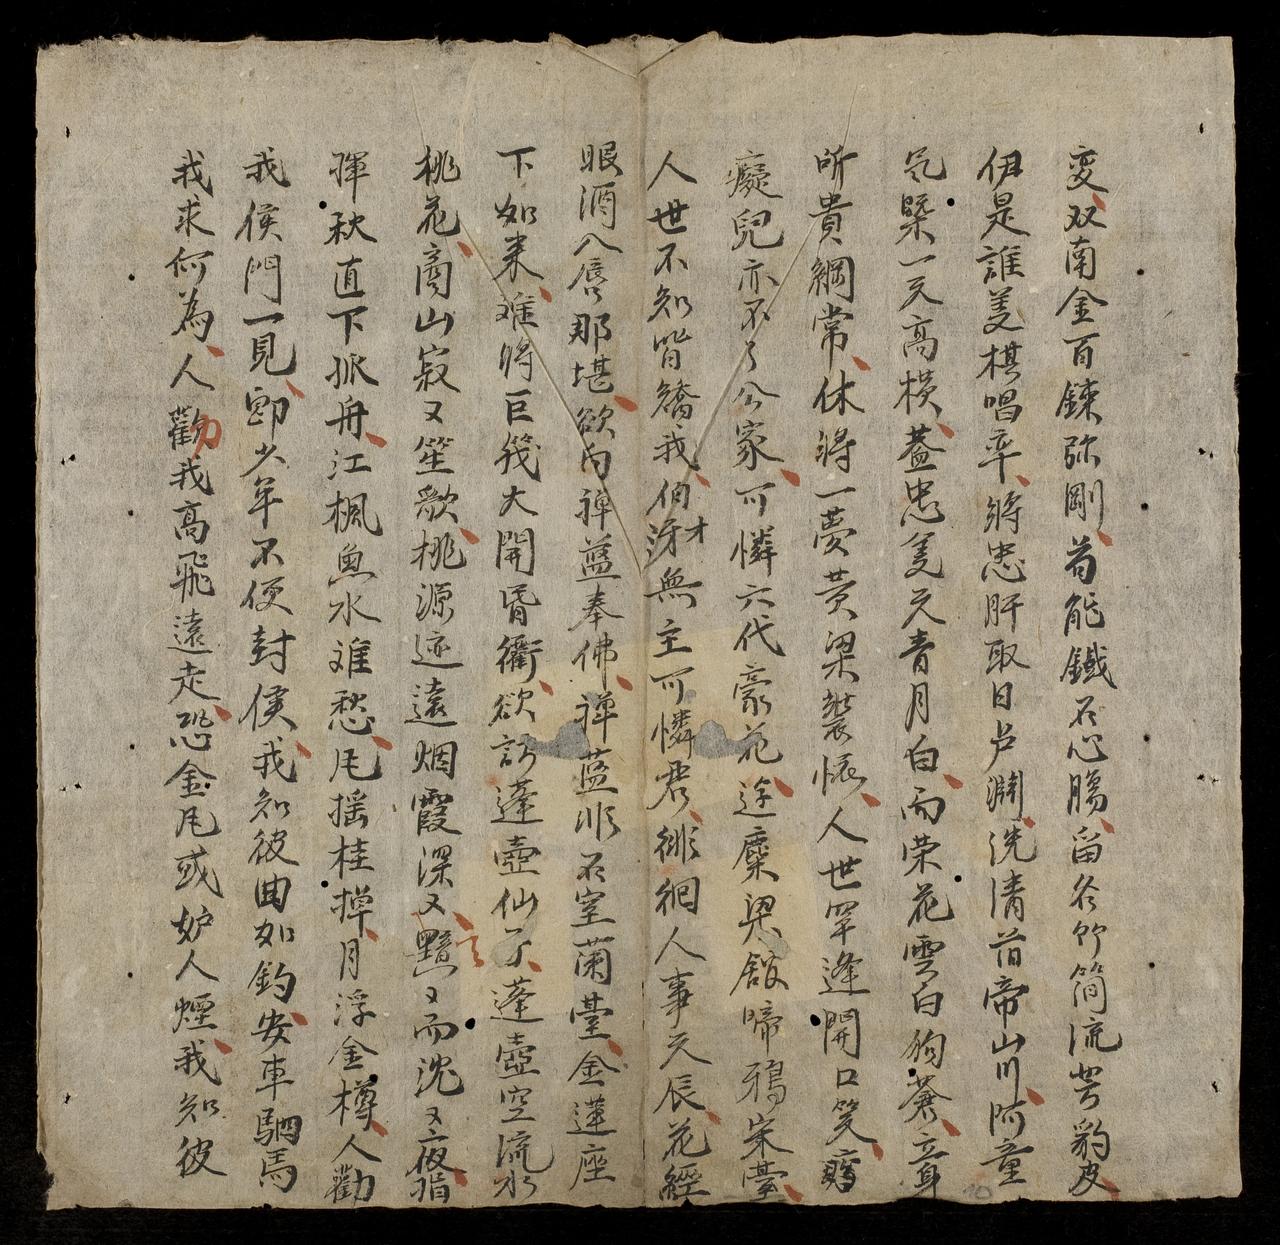 变双南金百鍊弥剛苟能鐡石心膓留名竹简流芳豹皮
伊是誰羙棋唱卒將忠肝取日卢渊洗清苜帝山川阿童
氣槩一天高横盖忠羙天青月白而荣花雲白狗蒼聋
所貴綱常休將一夢黄梁裝懷人世罕逢開口笑痴
癡兒亦不了公家可憐六代豪花逕麋梁舘啼鴉宋䑓
人世不知皆矯我伯牙無主可憐君徘徊人事天辰花經
眼酒入唇那堪欲向禅蓝奉佛禅蓝非石室蘭臺金莲座
下如来难將巨筏大開昏衢欲訪蓬壺仙子蓬壺空流水
桃花商山寂又笙歌桃源迹遠烟霞深又黯又而沈又夜指
暉秋直下孤舟江楓魚水难愁凡摇桂掉月浮金樽人勸
我侯門一見郎少年不便封侯我知彼曲如鈎安車駟馬
我求何為人勸我高飛遠走恐金凡或妒人煙我知彼